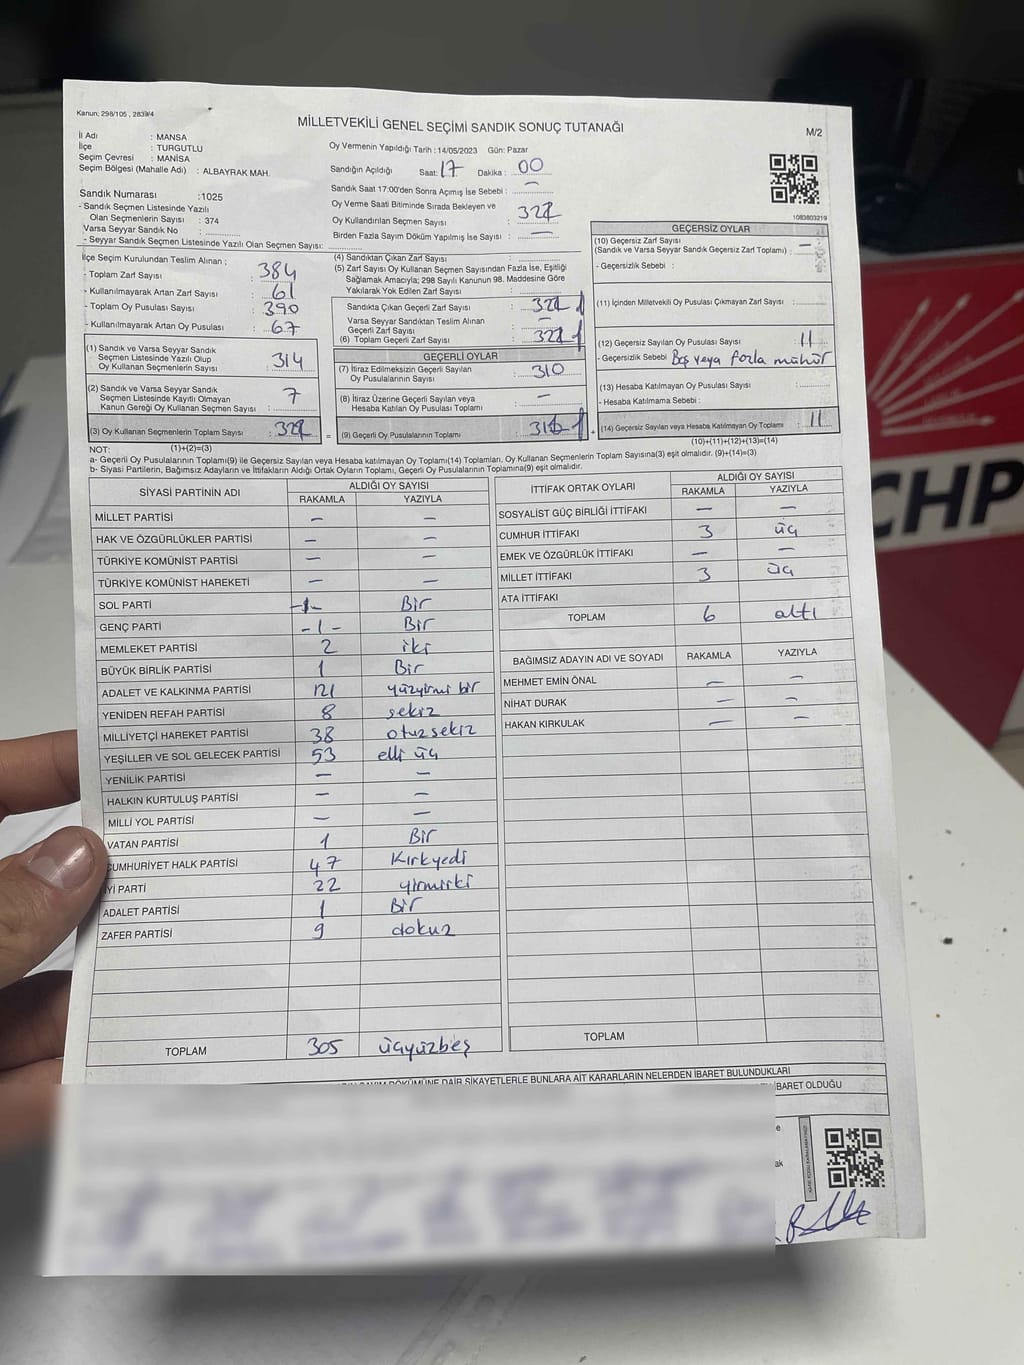 Kanun: 298/105 , 2839/4
MİLLETVEKİLİ GENEL SEÇİMİ SANDIK SONUÇ TUTANAĞI
M/2
İl Adı : MANSA
İlçe : TURGUTLU
Seçim Çevresi : MANİSA
Seçim Bölgesi (Mahalle Adı) : ALBAYRAK MAH.
Sandık Numarası : 1025
- Sandık Seçmen Listesinde Yazılı
Olan Seçmenlerin Sayısı : 374
Varsa Seyyar Sandık No :
- Seyyar Sandık Seçmen Listesinde Yazılı Olan Seçmen Sayısı:
Oy Vermenin Yapıldığı Tarih : 14/05/2023 Gün: Pazar
Sandığın Açıldığı Saat: 17 Dakika : 00
Sandık Saat 17:00'den Sonra Açımış İse Sebebi : —
Oy Verme Saati Bitiminde Sırada Bekleyen ve
Oy Kullandırılan Seçmen Sayısı :
Birden Fazla Sayım Döküm Yapılmış İse Sayısı : —
1083803219
İlçe Seçim Kurulundan Teslim Alınan ;
- Toplam Zarf Sayısı : 384
- Kullanılmayarak Artan Zarf Sayısı : 61
- Toplam Oy Pusulası Sayısı : 390
- Kullanılmayarak Artan Oy Pusulası : 67
(1) Sandık ve Varsa Seyyar Sandık
Seçmen Listesinde Yazılı Olup
Oy Kullanan Seçmenlerin Sayısı : 314
(2) Sandık ve Varsa Seyyar Sandık
Seçmen Listesinde Kayıtlı Olmayan
Kanun Gereği Oy Kullanan Seçmen Sayısı : 7
(3) Oy Kullanan Seçmenlerin Toplam Sayısı :
(4) Sandıktan Çıkan Zarf Sayısı :
(5) Zarf Sayısı Oy Kullanan Seçmen Sayısından Fazla İse, Eşitliği
Sağlamak Amacıyla; 298 Sayılı Kanunun 98. Maddesine Göre
Yakılarak Yok Edilen Zarf Sayısı :
Sandıkta Çıkan Geçerli Zarf Sayısı :
Varsa Seyyar Sandıktan Teslim Alınan
Geçerli Zarf Sayısı : —
(6) Toplam Geçerli Zarf Sayısı :
GEÇERLİ OYLAR
(7) İtiraz Edilmeksizin Geçerli Sayılan
Oy Pusulalarının Sayısı : 310
(8) İtiraz Üzerine Geçerli Sayılan veya
Hesaba Katılan Oy Pusulası Toplamı : —
= (9) Geçerli Oy Pusulalarının Toplamı :
GEÇERSİZ OYLAR
(10) Geçersiz Zarf Sayısı
(Sandık ve Varsa Seyyar Sandık Geçersiz Zarf Toplamı) : —
- Geçersizlik Sebebi :
(11) İçinden Milletvekili Oy Pusulası Çıkmayan Zarf Sayısı :
(12) Geçersiz Sayılan Oy Pusulası Sayısı : 11
- Geçersizlik Sebebi : Boş veya fazla mühür
(13) Hesaba Katılmayan Oy Pusulası Sayısı :
- Hesaba Katılmama Sebebi :
+ (14) Geçersiz Sayılan veya Hesaba Katılmayan Oy Toplamı : 11
NOT: (1)+(2)=(3) (10)+(11)+(12)+(13)=(14)
a- Geçerli Oy Pusulalarının Toplamı(9) ile Geçersiz Sayılan veya Hesaba Katılmayan Oy Toplamı(14) Toplamları, Oy Kullanan Seçmenlerin Toplam Sayısına(3) eşit olmalıdır. (9)+(14)=(3)
b- Siyasi Partilerin, Bağımsız Adayların ve İttifakların Aldığı Ortak Oyların Toplamı, Geçerli Oy Pusulalarının Toplamına(9) eşit olmalıdır.
SİYASİ PARTİNİN ADI ALDIĞI OY SAYISI
RAKAMLA YAZIYLA
MİLLET PARTİSİ — —
HAK VE ÖZGÜRLÜKLER PARTİSİ — —
TÜRKİYE KOMÜNİST PARTİSİ — —
TÜRKİYE KOMÜNİST HAREKETİ — —
SOL PARTİ -1- Bir
GENÇ PARTİ -1- Bir
MEMLEKET PARTİSİ 2 iki
BÜYÜK BİRLİK PARTİSİ 1 Bir
ADALET VE KALKINMA PARTİSİ 121 yüzyirmi bir
YENİDEN REFAH PARTİSİ 8 sekiz
MİLLİYETÇİ HAREKET PARTİSİ 38 otuzsekiz
YEŞİLLER VE SOL GELECEK PARTİSİ 53 elli üç
YENİLİK PARTİSİ — —
HALKIN KURTULUŞ PARTİSİ — —
MİLLİ YOL PARTİSİ — —
VATAN PARTİSİ 1 Bir
CUMHURİYET HALK PARTİSİ 47 Kırkyedi
İYİ PARTİ 22 yirmiiki
ADALET PARTİSİ 1 Bir
ZAFER PARTİSİ 9 dokuz
TOPLAM 305 üçyüzbeş
İTTİFAK ORTAK OYLARI ALDIĞI OY SAYISI
RAKAMLA YAZIYLA
SOSYALİST GÜÇ BİRLİĞİ İTTİFAKI — —
CUMHUR İTTİFAKI 3 üç
EMEK VE ÖZGÜRLÜK İTTİFAKI — —
MİLLET İTTİFAKI 3 üç
ATA İTTİFAKI
TOPLAM 6 altı
BAĞIMSIZ ADAYIN ADI VE SOYADI RAKAMLA YAZIYLA
MEHMET EMİN ÖNAL — —
NİHAT DURAK — —
HAKAN KIRKULAK — —
TOPLAM
DÖKÜMÜNE DAİR ŞİKAYETLERLE BUNLARA AİT KARARLARIN NELERDEN İBARET BULUNDUKLARI
İBARET OLDUĞU
CHP